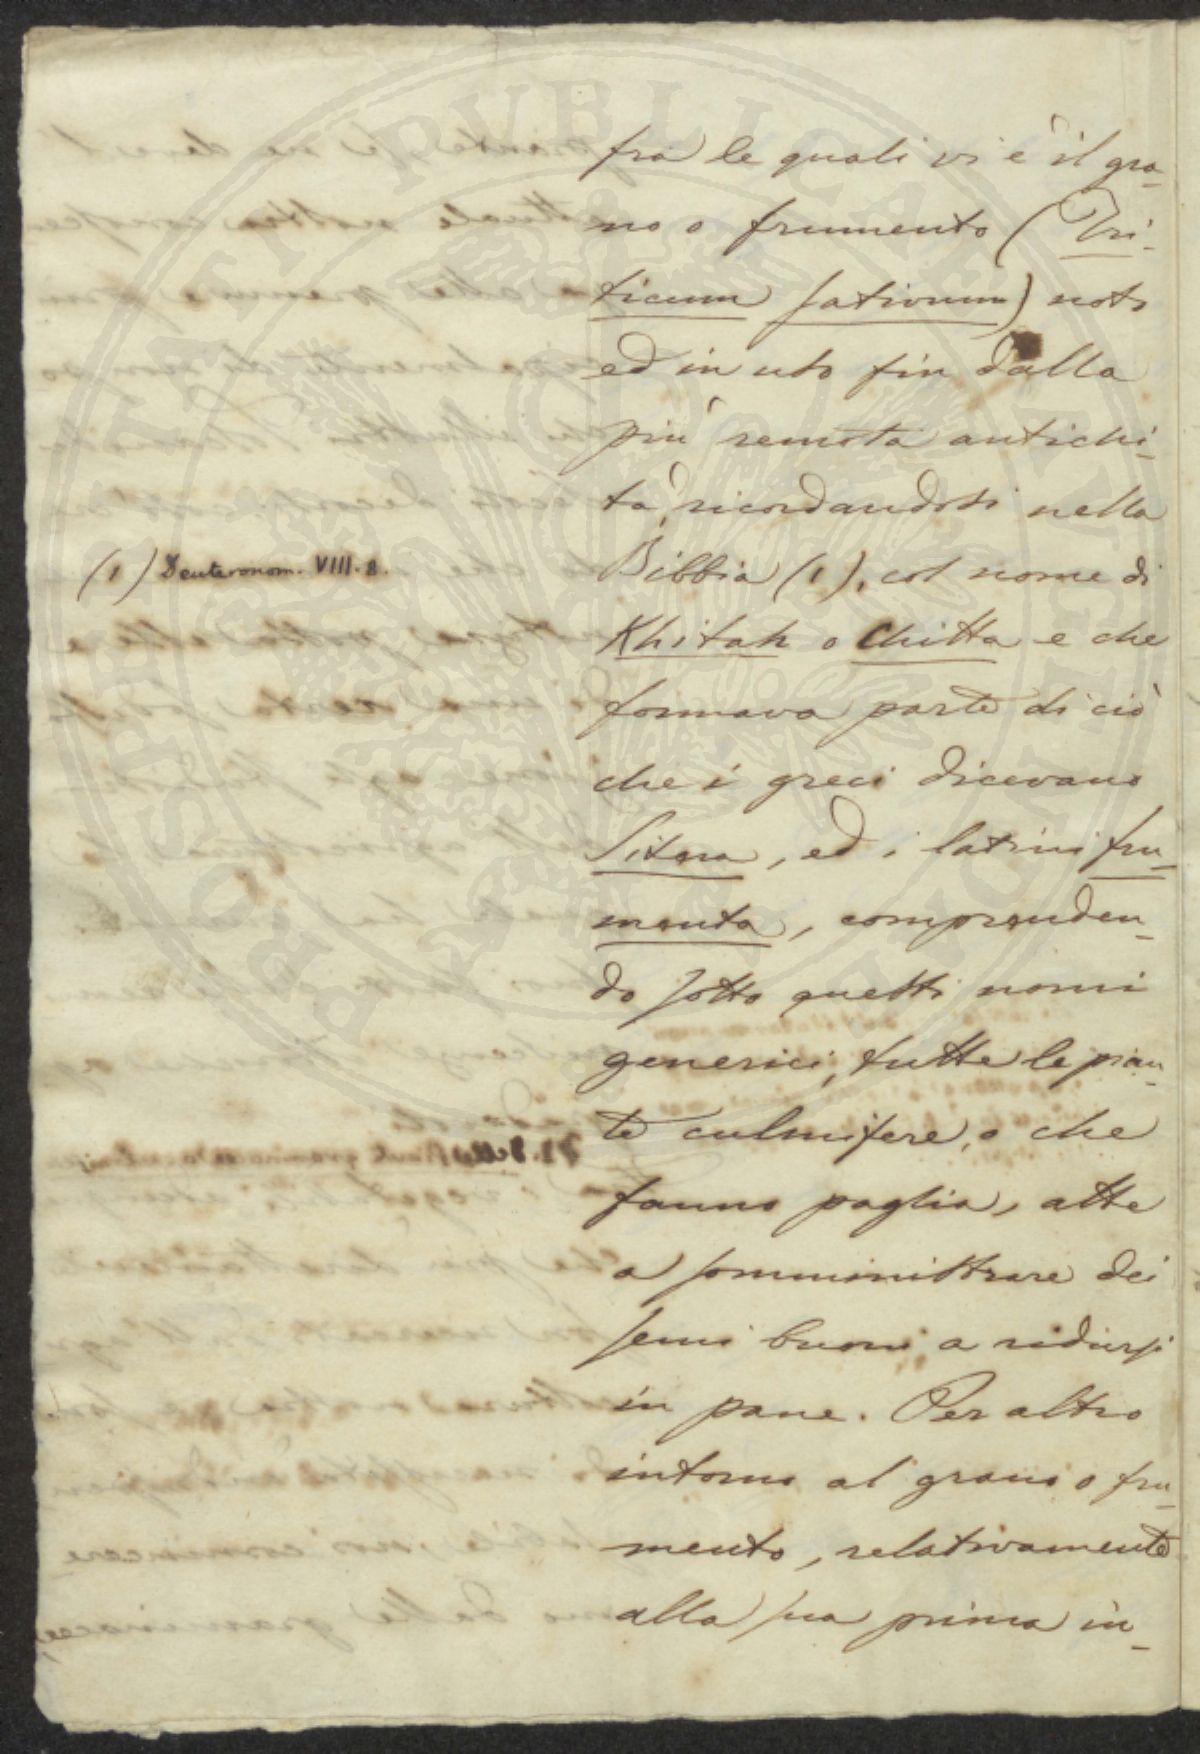 fra le quali vi è il gra-
no o frumento (Tri-
ticum sativum) noto
ed in uso fin dalla
più remota antichi-
tà, ricordandosi nella
(1) Deuteronom. VIII. 8.
Bibbia (1), col nome di
Khitah o Chitta e che
formava parte di ciò
che i greci dicevano
Sitera, ed i latini fru-
menta, comprenden-
do sotto questi nomi
generici, tutte le pian-
te culmifere, o che
fanno paglia, atte
a somministrare dei
semi buoni a ridursi
in pane. Per altro
intorno al grano o fru-
mento, relativamente
alla sua prima in-